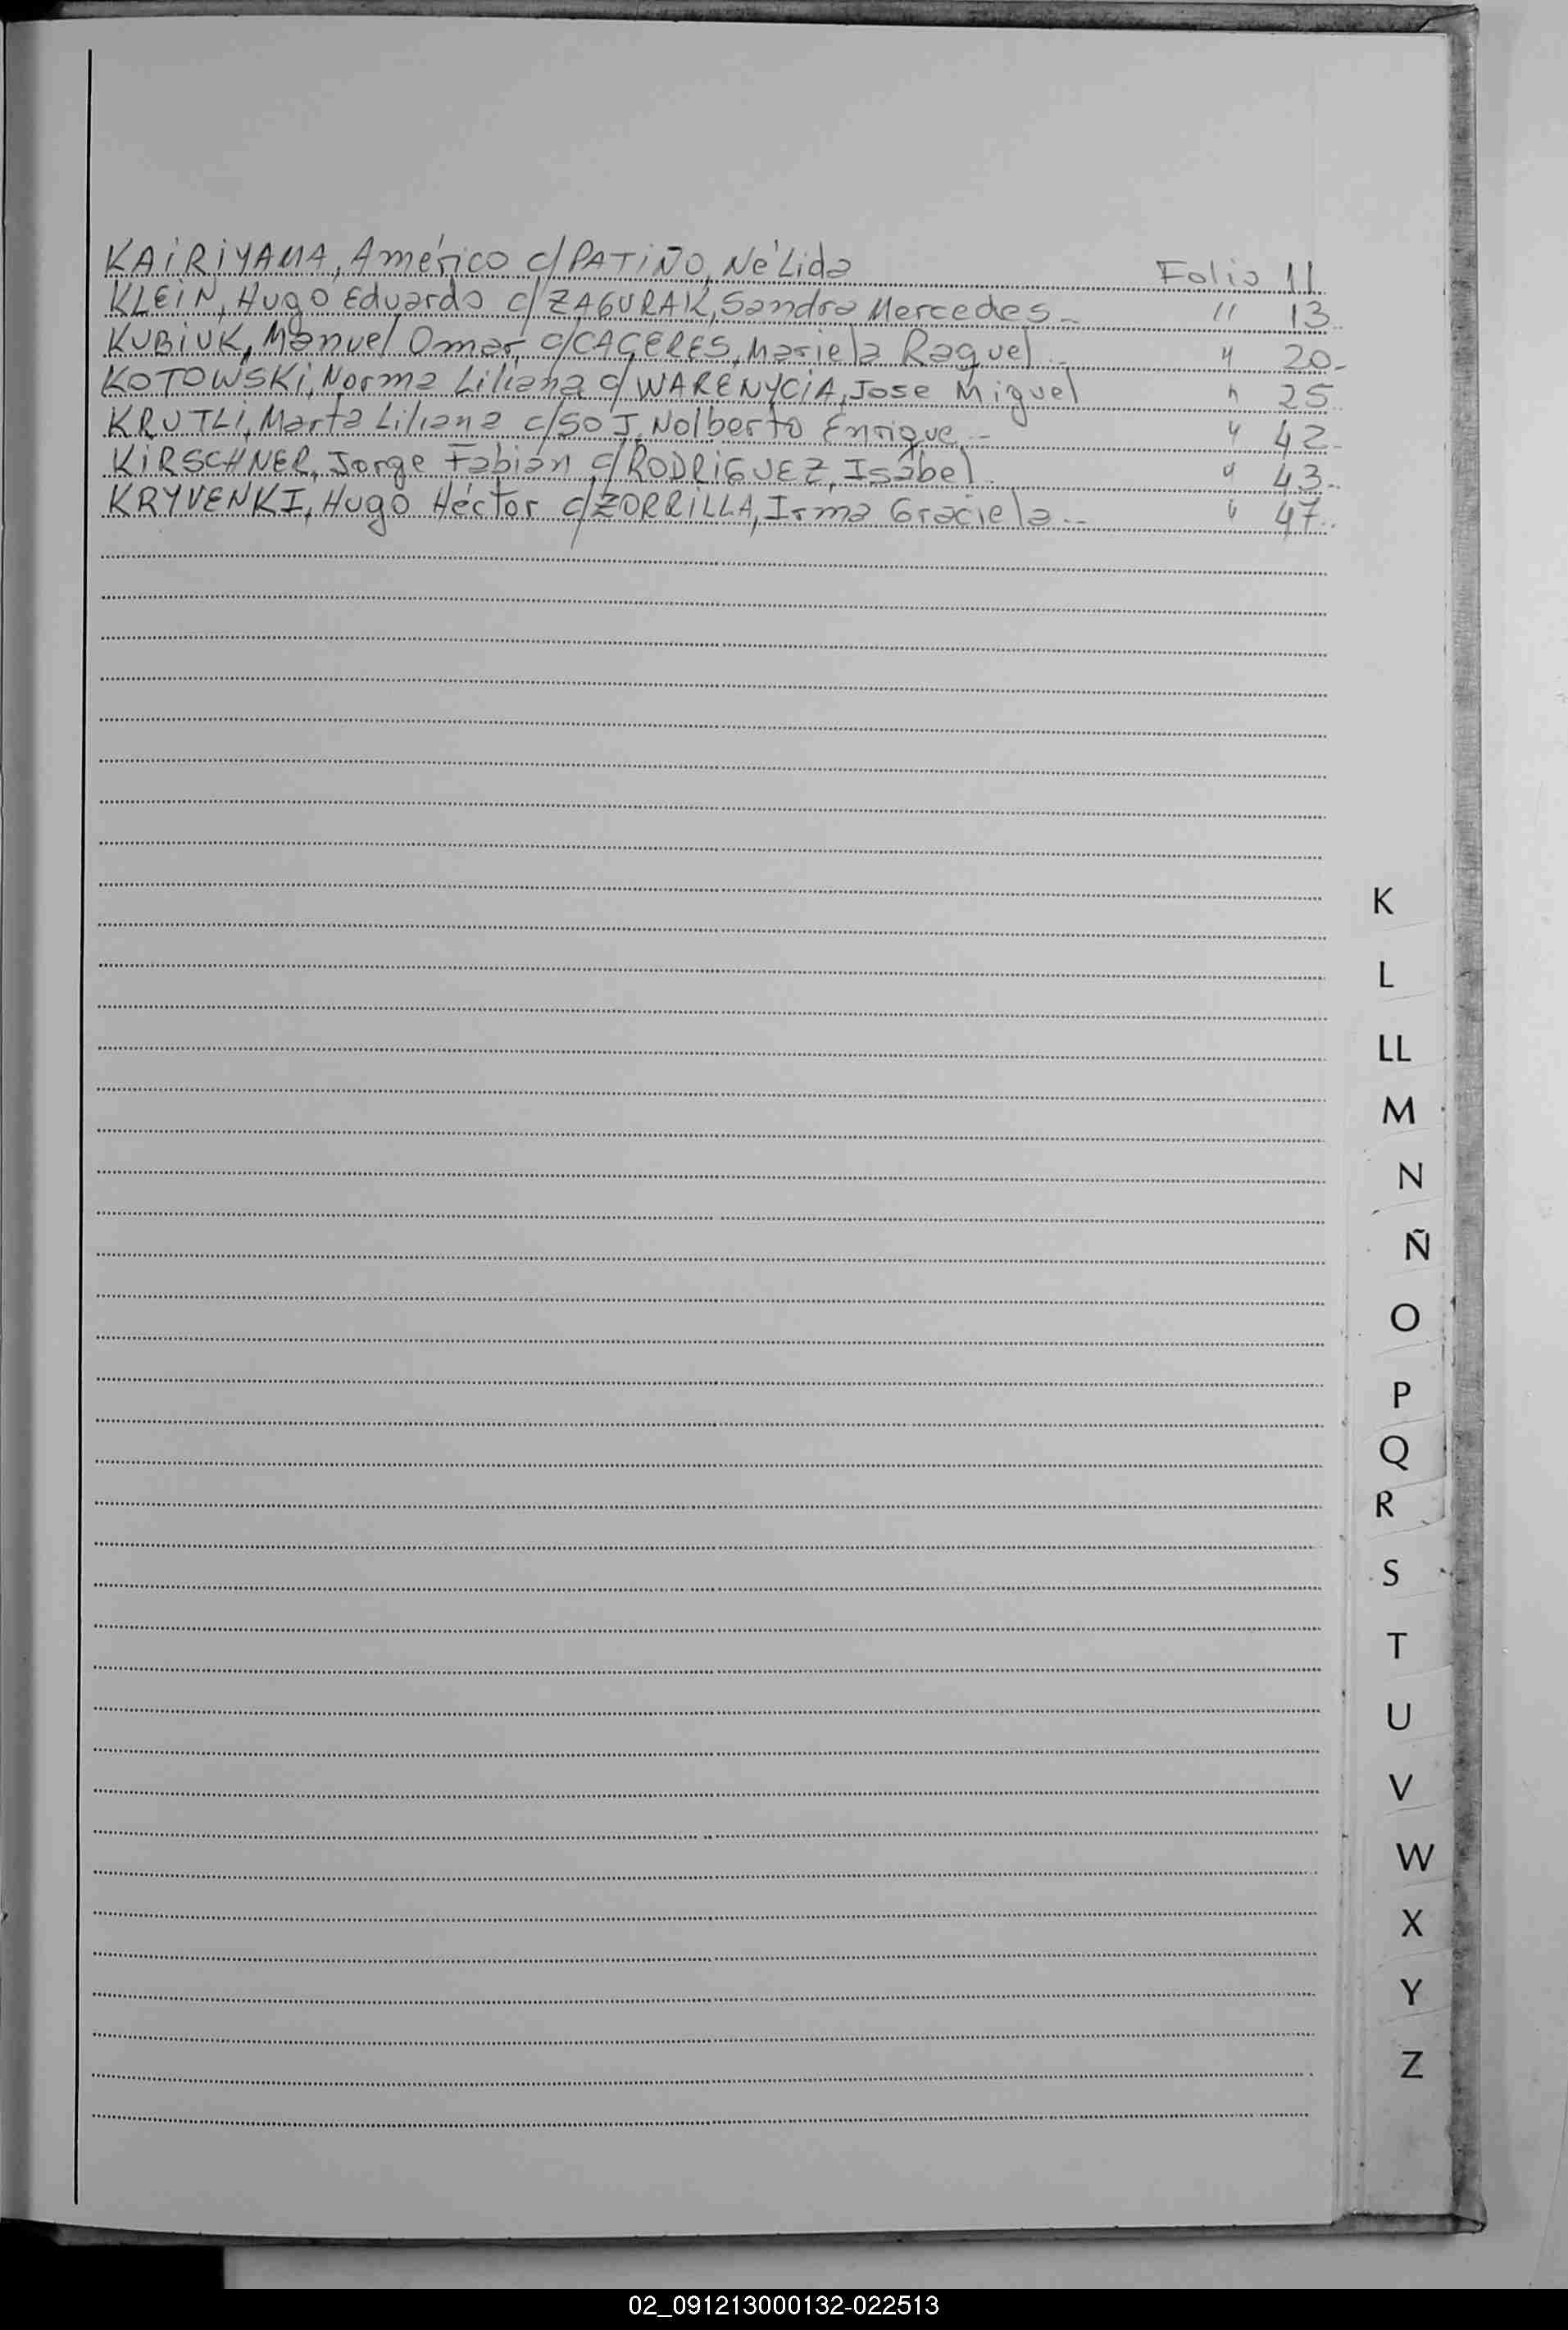 KAIRIYAMA, Américo c/ PATIÑO, Nélida Folio 11
KLEIN, Hugo Eduardo c/ ZAGURAK, Sandra Mercedes - " 13
KUBIUK, Manuel Omar c/ CACERES, Mariela Raquel - " 20-
KOTOWSKI, Norma Liliana c/ WARENYCIA, Jose Miguel " 25
KRUTLI, Marta Liliana c/ SOJ, Nolberto Enrique - " 42-
KIRSCHNER, Jorge Fabián c/ RODRIGUEZ, Isabel " 43-
KRYVENKI, Hugo Héctor c/ ZORRILLA, Irma Graciela - " 47-
K
L
LL
M
N
Ñ
O
P
Q
R
S
T
U
V
W
X
Y
Z
02_091213000132-022513